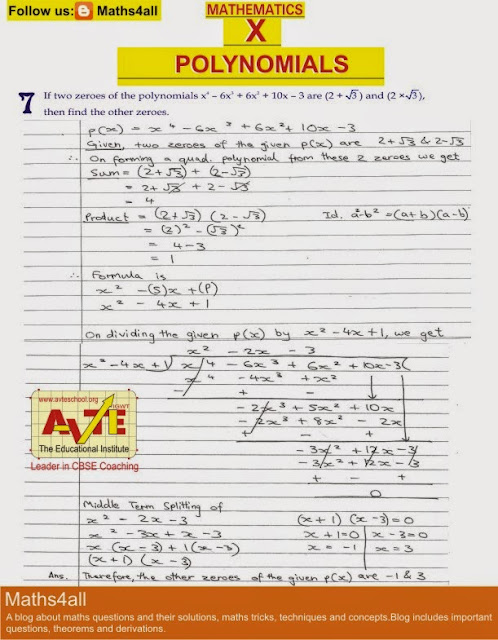 Follow us: B Maths4all
MATHEMATICS
X
POLYNOMIALS
7 If two zeroes of the polynomials x⁴ – 6x³ + 6x² + 10x – 3 are (2 + √3) and (2 ×√3),
then find the other zeroes.
p(x) = x⁴ - 6x³ + 6x² + 10x - 3
Given, two zeroes of the given p(x) are 2+√3 & 2-√3
∴ On forming a quad. polynomial from these 2 zeroes we get
Sum = (2+√3) + (2-√3)
= 2+√3 + 2-√3
= 4
Product = (2+√3) (2-√3) Id. a²-b² = (a+b)(a-b)
= (2)² - (√3)²
= 4-3
= 1
∴ Formula is
x² - (S)x + (P)
x² - 4x + 1
On dividing the given p(x) by x² - 4x + 1, we get
x² - 2x - 3
x² - 4x + 1) x⁴ - 6x³ + 6x² + 10x - 3(
x⁴ - 4x³ + x²
- + -
- 2x³ + 5x² + 10x
- 2x³ + 8x² - 2x
+ - +
- 3x² + 12x - 3
- 3x² + 12x - 3
+ - +
0
www.avteschool.org
AVTE
The Educational Institute
Leader in CBSE Coaching
Middle Term Splitting of
x² - 2x - 3 (x+1) (x-3) = 0
x² - 3x + x - 3 x+1=0 x-3=0
x (x-3) + 1(x-3) x = -1 x = 3
(x+1) (x-3)
Ans. Therefore, the other zeroes of the given p(x) are -1 & 3
Maths4all
A blog about maths questions and their solutions, maths tricks, techniques and concepts.Blog includes important
questions, theorems and derivations.